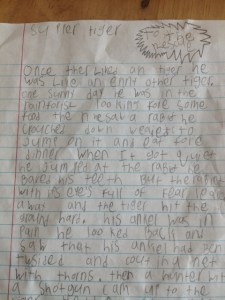 The
Once ther lives an tiger he
was Lives an enrie other tiger.
one sunny day he was in the
rainforist looking fore some
food the he saw a rabit he
crouched down redess to
Jump on it and eat fore
dinner When it got quiet
he Jumped at the rabit he
bared his teeth But the rabit
with is eye's full of fear leapt
away and the tiger hit the
hard. His ankel was in
Pain he looked back and
saw that his ankel had
twisded and cout in a net
with thorns. then a hunter with
a shotgun cam up to the